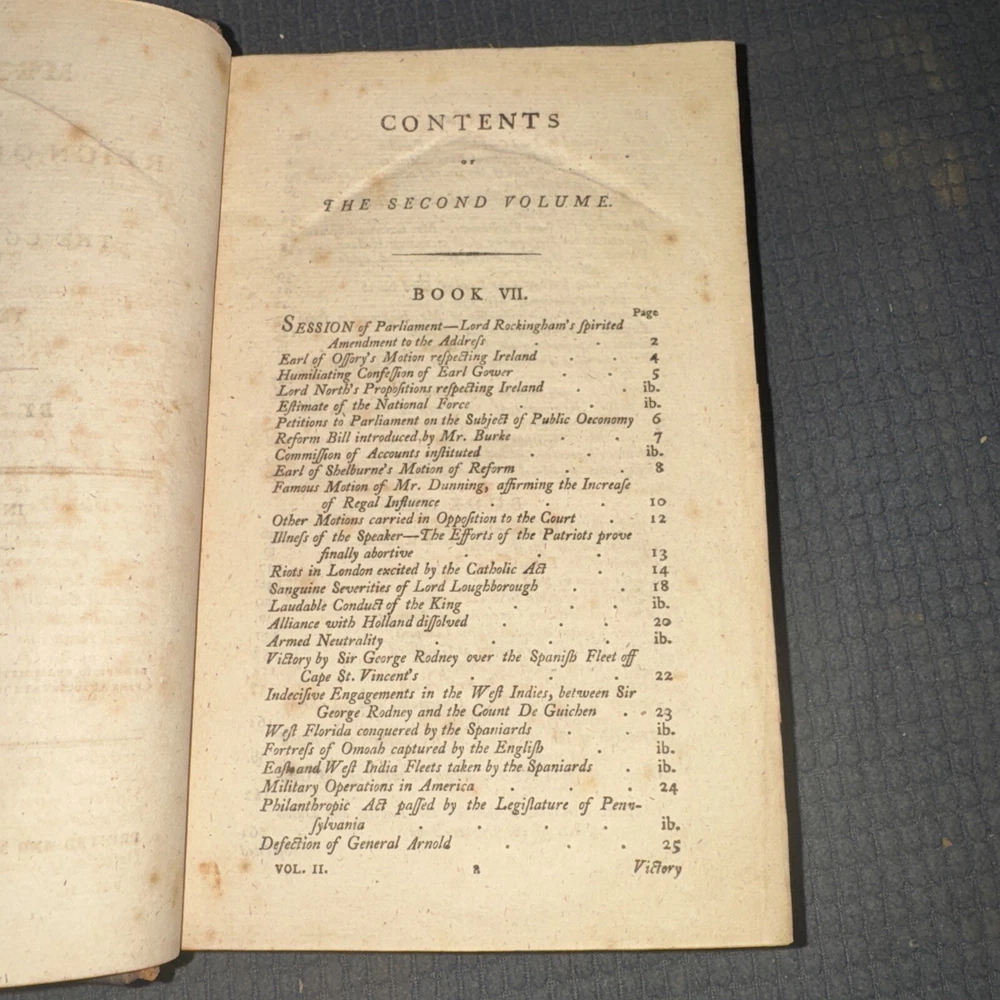 CONTENTS
OF
THE SECOND VOLUME.
BOOK VII.
Page
SESSION of Parliament—Lord Rockingham's ſpirited
Amendment to the Addreſs . . 2
Earl of Oſſory's Motion reſpecting Ireland . . 4
Humiliating Confeſſion of Earl Gower . . 5
Lord North's Propoſitions reſpecting Ireland . . ib.
Eſtimate of the National Force . . . ib.
Petitions to Parliament on the Subject of Public Oeconomy 6
Reform Bill introduced by Mr. Burke . . 7
Commiſſion of Accounts inſtituted . . ib.
Earl of Shelburne's Motion of Reform . . 8
Famous Motion of Mr. Dunning, affirming the Increaſe
of Regal Influence . . . 10
Other Motions carried in Oppoſition to the Court . 12
Illneſs of the Speaker—The Efforts of the Patriots prove
finally abortive . . . 13
Riots in London excited by the Catholic Act . 14
Sanguine Severities of Lord Loughborough . . 18
Laudable Conduct of the King . . . ib.
Alliance with Holland diſſolved . . . 20
Armed Neutrality . . . . ib.
Victory by Sir George Rodney over the Spaniſh Fleet off
Cape St. Vincent's . . . 22
Indeciſive Engagements in the Weſt Indies, between Sir
George Rodney and the Count De Guichen . . 23
Weſt Florida conquered by the Spaniards . . ib.
Fortreſs of Omoah captured by the Engliſh . ib.
Eaſt and Weſt India Fleets taken by the Spaniards . ib.
Military Operations in America . . . 24
Philanthropic Act paſſed by the Legiſlature of Penn-
ſylvania . . . . ib.
Defection of General Arnold . . . 25
VOL. II. a Victory